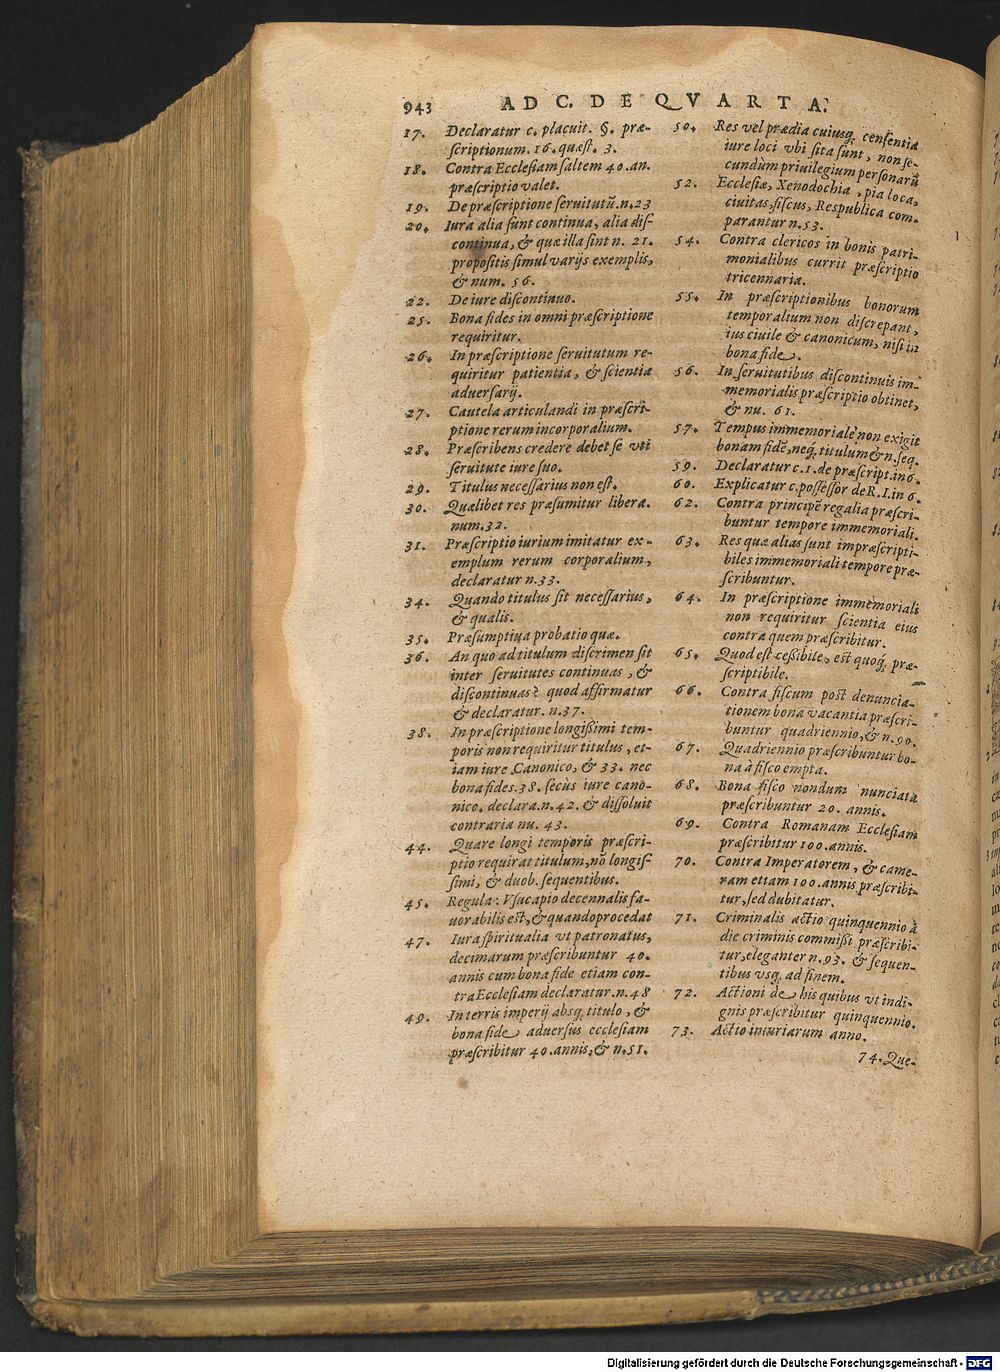 943 AD C. DE QVARTA.
17. Declaratur c. placuit. §. præ-
ſcriptionum. 16. quæſt. 3.
18. Contra Eccleſiam ſaltem 40. an.
præſcriptio valet.
19. De præſcriptione ſeruitutũ. n. 23
20. Iura alia ſunt continua, alia diſ-
continua, & quæ illa ſint n. 21.
propoſitis ſimul varijs exemplis,
& num. 56.
22. De iure diſcontinuo.
25. Bona fides in omni præſcriptione
requiritur.
26. In præſcriptione ſeruitutum re-
quiritur patientia, & ſcientia
aduerſarij.
27. Cautela articulandi in præſcri-
ptione rerum incorporalium.
28. Præſcribens credere debet ſe vti
ſeruitute iure ſuo.
29. Titulus neceſſarius non eſt.
30. Quælibet res præſumitur libera.
num. 32.
31. Præſcriptio iurium imitatur ex-
emplum rerum corporalium,
declaratur n. 33.
34. Quando titulus ſit neceſſarius,
& qualis.
35. Præſumptiua probatio quæ.
36. An quo ad titulum diſcrimen ſit
inter ſeruitutes continuas, &
diſcontinuas? quod affirmatur
& declaratur. n. 37.
38. In præſcriptione longiſsimi tem-
poris non requiritur titulus, et-
iam iure Canonico, & 33. nec
bona fides. 38. ſecus iure cano-
nico, declara. n. 42. & diſſoluit
contraria nu. 43.
44. Quare longi temporis præſcri-
ptio requirat titulum, nõ longiſ-
ſimi, & duob. ſequentibus.
45. Regula: Vſucapio decennalis fa-
uorabilis eſt, & quando procedat
47. Iura ſpiritualia vt patronatus,
decimarum præſcribuntur 40.
annis cum bona fide etiam con-
tra Eccleſiam declaratur. n. 48
49. In terris imperij absq; titulo, &
bona fide aduerſus eccleſiam
præſcribitur 40. annis, & n. 51.
50. Res vel prædia cuiusq; cenſentia
iure loci vbi ſita ſunt, non ſe-
cundùm priuilegium perſonarũ
52. Eccleſiæ, Xenodochia, pia loca,
ciuitas, fiſcus, Reſpublica com-
parantur n. 53.
54. Contra clericos in bonis patri-
monialibus currit præſcriptio
tricennaria.
55. In præſcriptionibus bonorum
temporalium non diſcrepant,
ius ciuile & canonicum, niſi in
bona fide.
56. In ſeruitutibus diſcontinuis im-
memorialis præſcriptio obtinet,
& nu. 61.
57. Tempus immemoriale non exigit
bonam fidẽ, neq; titulum & n. ſeq.
59. Declaratur c. 1. de præſcript. in 6.
60. Explicatur c. poſſeſſor de R. I. in 6.
62. Contra principẽ regalia præſcri-
buntur tempore immemoriali.
63. Res quæ alias ſunt impræſcripti-
biles immemoriali tempore præ-
ſcribuntur.
64. In præſcriptione immemoriali
non requiritur ſcientia eius
contra quem præſcribitur.
65. Quod eſt ceſsibile, eſt quoq; præ-
ſcriptibile.
66. Contra fiſcum poſt denuncia-
tionem bona vacantia præſcri-
buntur quadriennio, & n. 90.
67. Quadriennio præſcribuntur bo-
na à fiſco empta.
68. Bona fiſco nondum nunciata
præſcribuntur 20. annis.
69. Contra Romanam Eccleſiam
præſcribitur 100. annis.
70. Contra Imperatorem, & came-
ram etiam 100. annis præſcribi-
tur, ſed dubitatur.
71. Criminalis actio quinquennio à
die criminis commiſsi præſcribi-
tur, eleganter n. 93. & ſequen-
tibus vsq; ad finem.
72. Actioni de his quibus vt indi-
gnis præſcribitur quinquennio.
73. Actio iniuriarum anno.
74. Que-
Digitalisierung gefördert durch die Deutsche Forschungsgemeinschaft - DFG